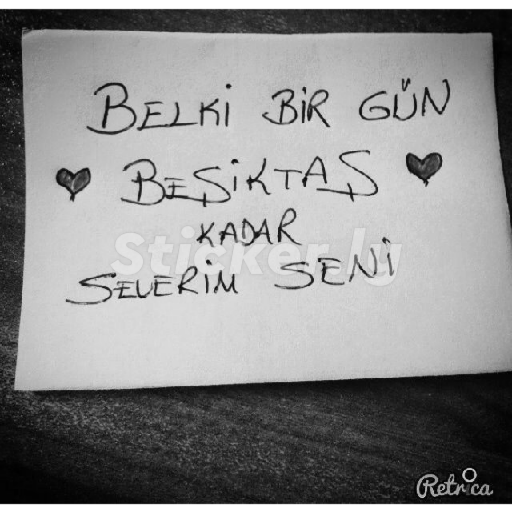 BELKİ BİR GÜN
BEŞİKTAŞ
KADAR
SEVERİM SENİ
Sticker.ly
Retrica